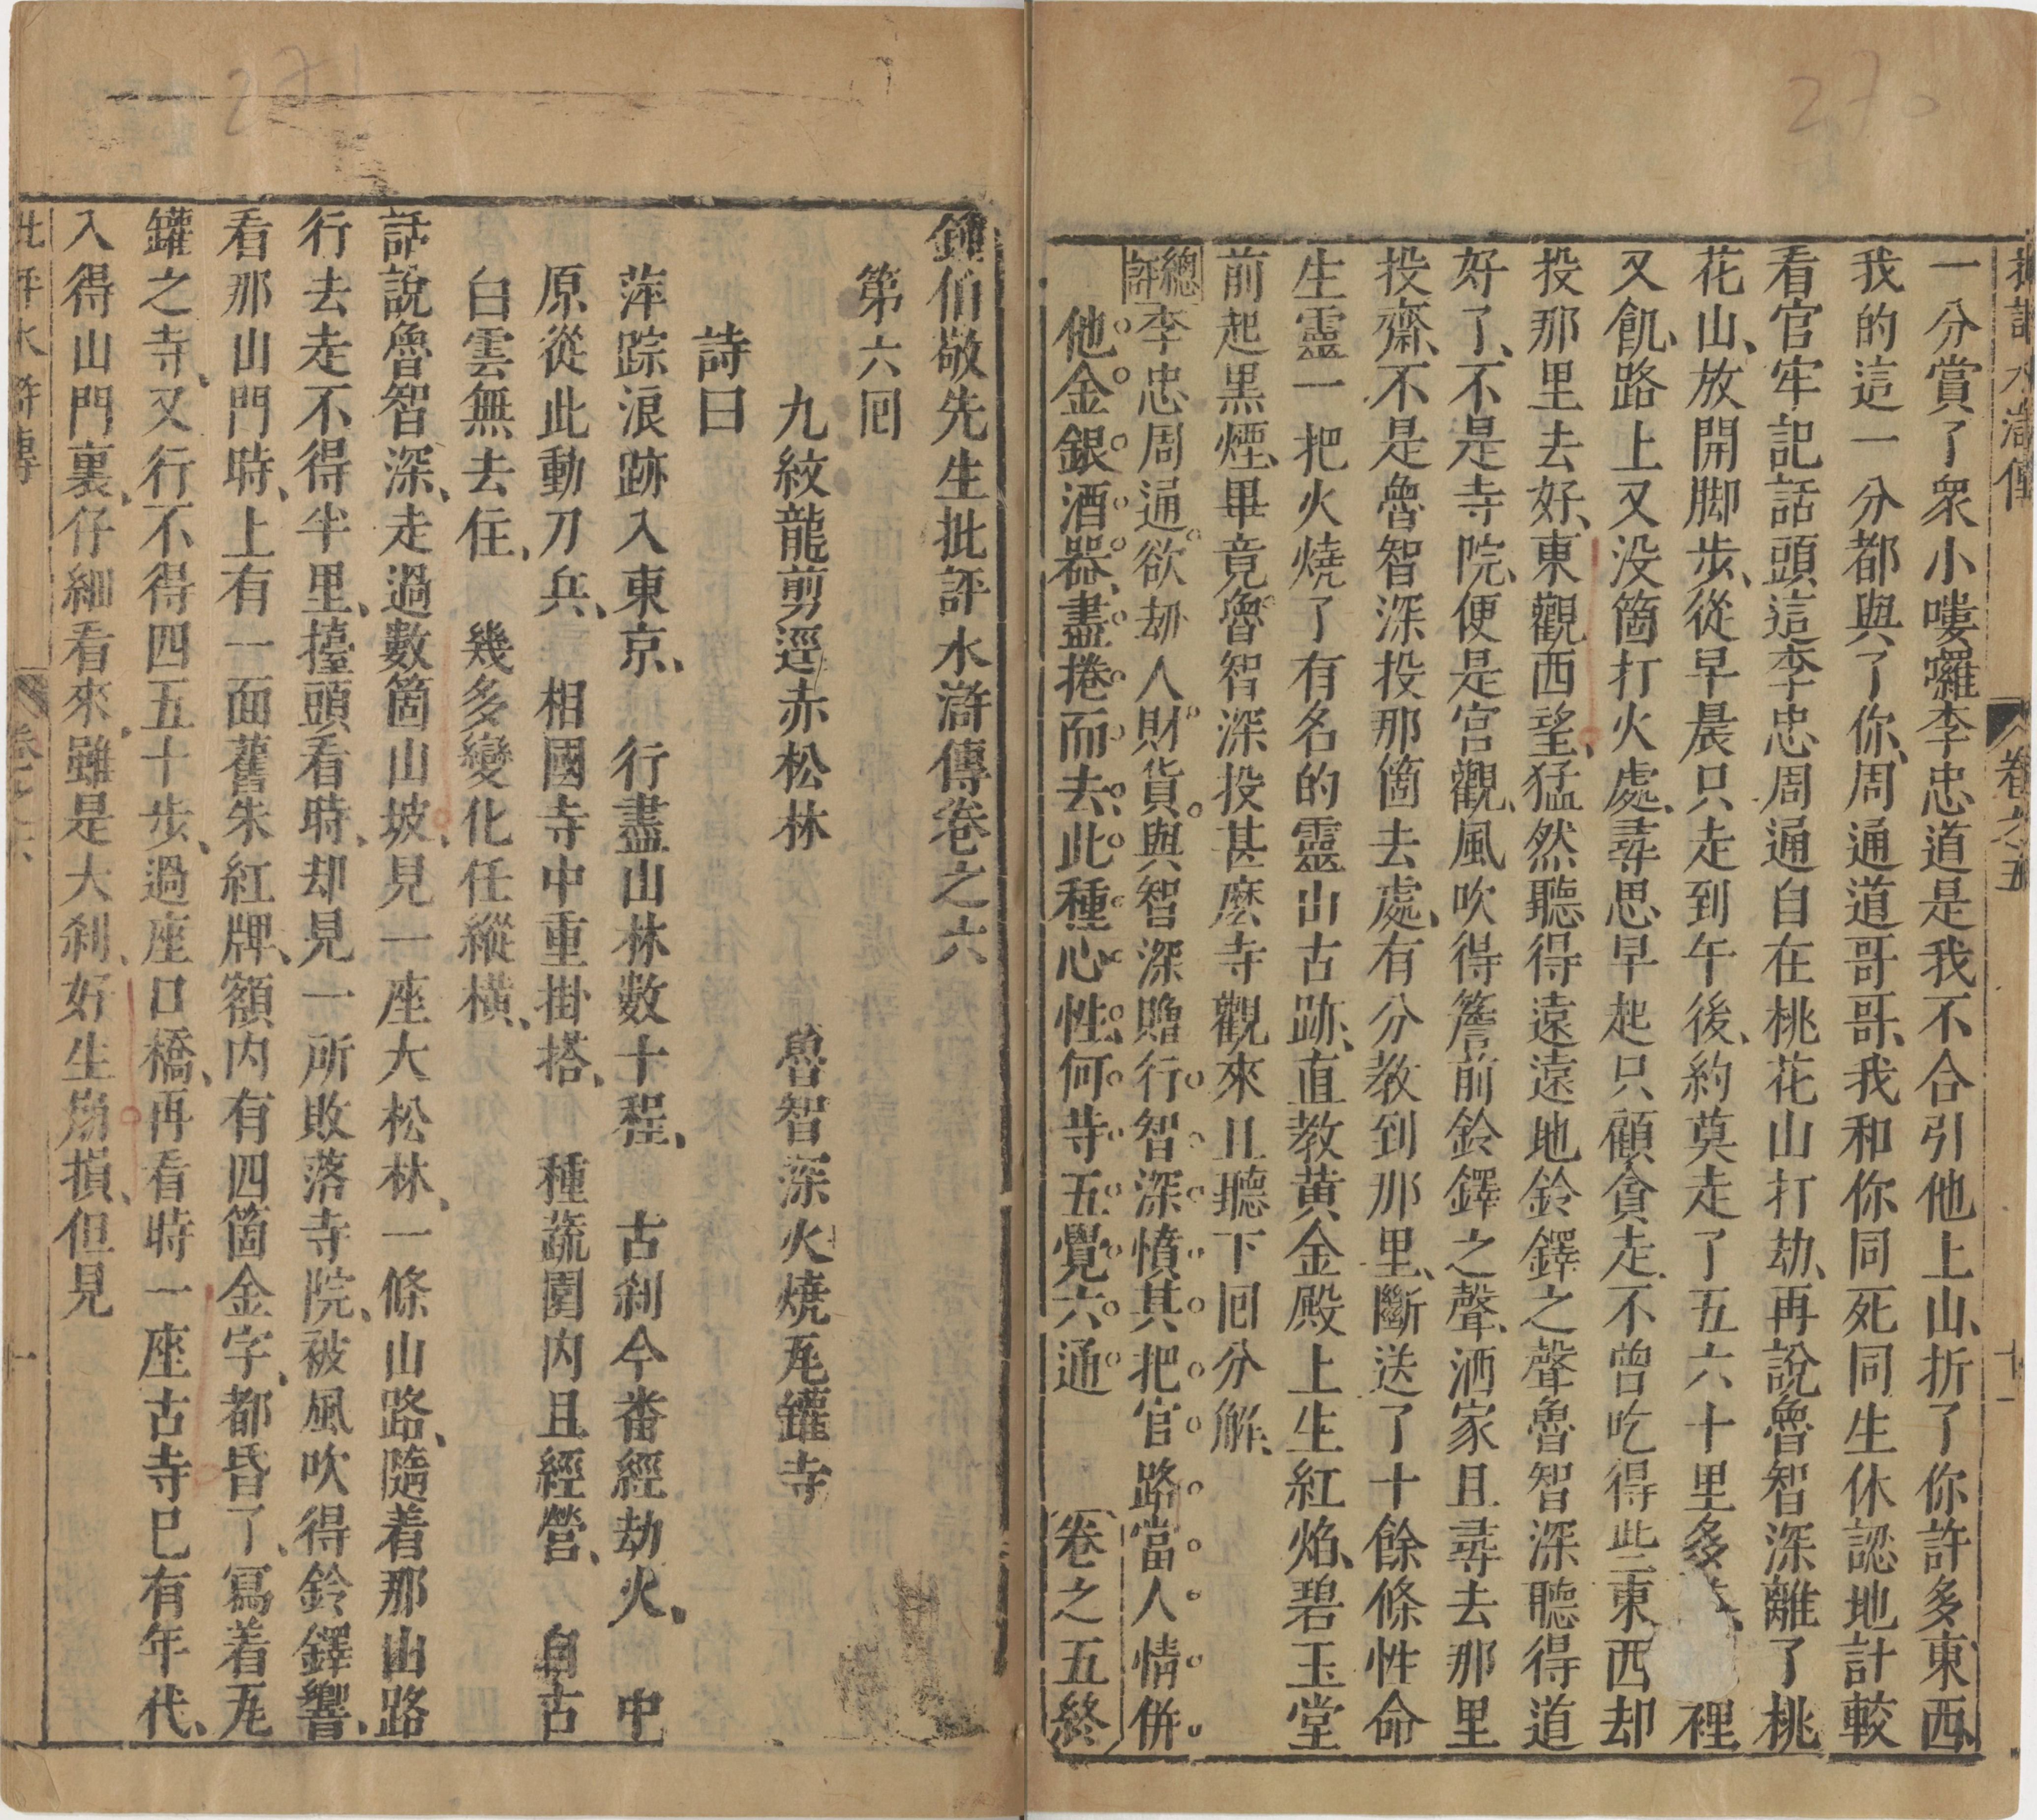 270
一分賞了衆小嘍囉李忠道是我不合引他上山、折了你許多東西、
我的這一分都與了你、周通道哥哥、我和你同死同生休認地計較
看官牢記話頭這李忠周通自在桃花山打劫、再說魯智深離了桃
花山、放開脚步、從早晨只走到午後、約莫走了五六十里多裡
又飢、路上又没箇打火處、尋思、早起只顧貪走、不曾吃得些東西却
投那里去好、東觀西望、猛然聽得遠遠地鈴鐸之聲魯智深聽得道
好了、不是寺院、便是宫觀、風吹得簷前鈴鐸之聲、洒家且尋去那里
投齋、不是魯智深投那箇去處、有分教到那里、斷送了十餘條性命
生靈一把火燒了有名的靈山古跡、直教黄金殿上生紅焰、碧玉堂
前起黒煙、畢竟魯智深投甚麽寺觀來且聽下回分解、
總評李忠周通欲劫人財貨與智深贈行智深憤其把官路當人情併
他金銀酒器、盡捲而去、此種心性、何等五覺六通
卷之五終
卷之五
十一
271
鍾伯敬先生批評水滸傳卷之六
第六回
九紋龍剪逕赤松林 魯智深火燒瓦罐寺
詩曰
萍踪浪跡入東京、 行盡山林数十程、 古刹今番經劫火、 中
原從此動刀兵、 相國寺中重掛搭、 種蔬園内且經營、 自古
白雲無去住、 幾多變化任縱橫、
話說魯智深、走過數箇山坡、見一座大松林、一條山路、隨着那山路
行去走不得半里、擡頭看時、却見一所敗落寺院、被風吹得鈴鐸響、
看那山門時、上有一面舊朱紅牌、額内有四箇金字、都昏了、寫着瓦
罐之寺、又行不得四五十步、過座口橋、再看時一座古寺已有年代、
入得山門裏、仔細看來、雖是大刹、好生崩損、但見